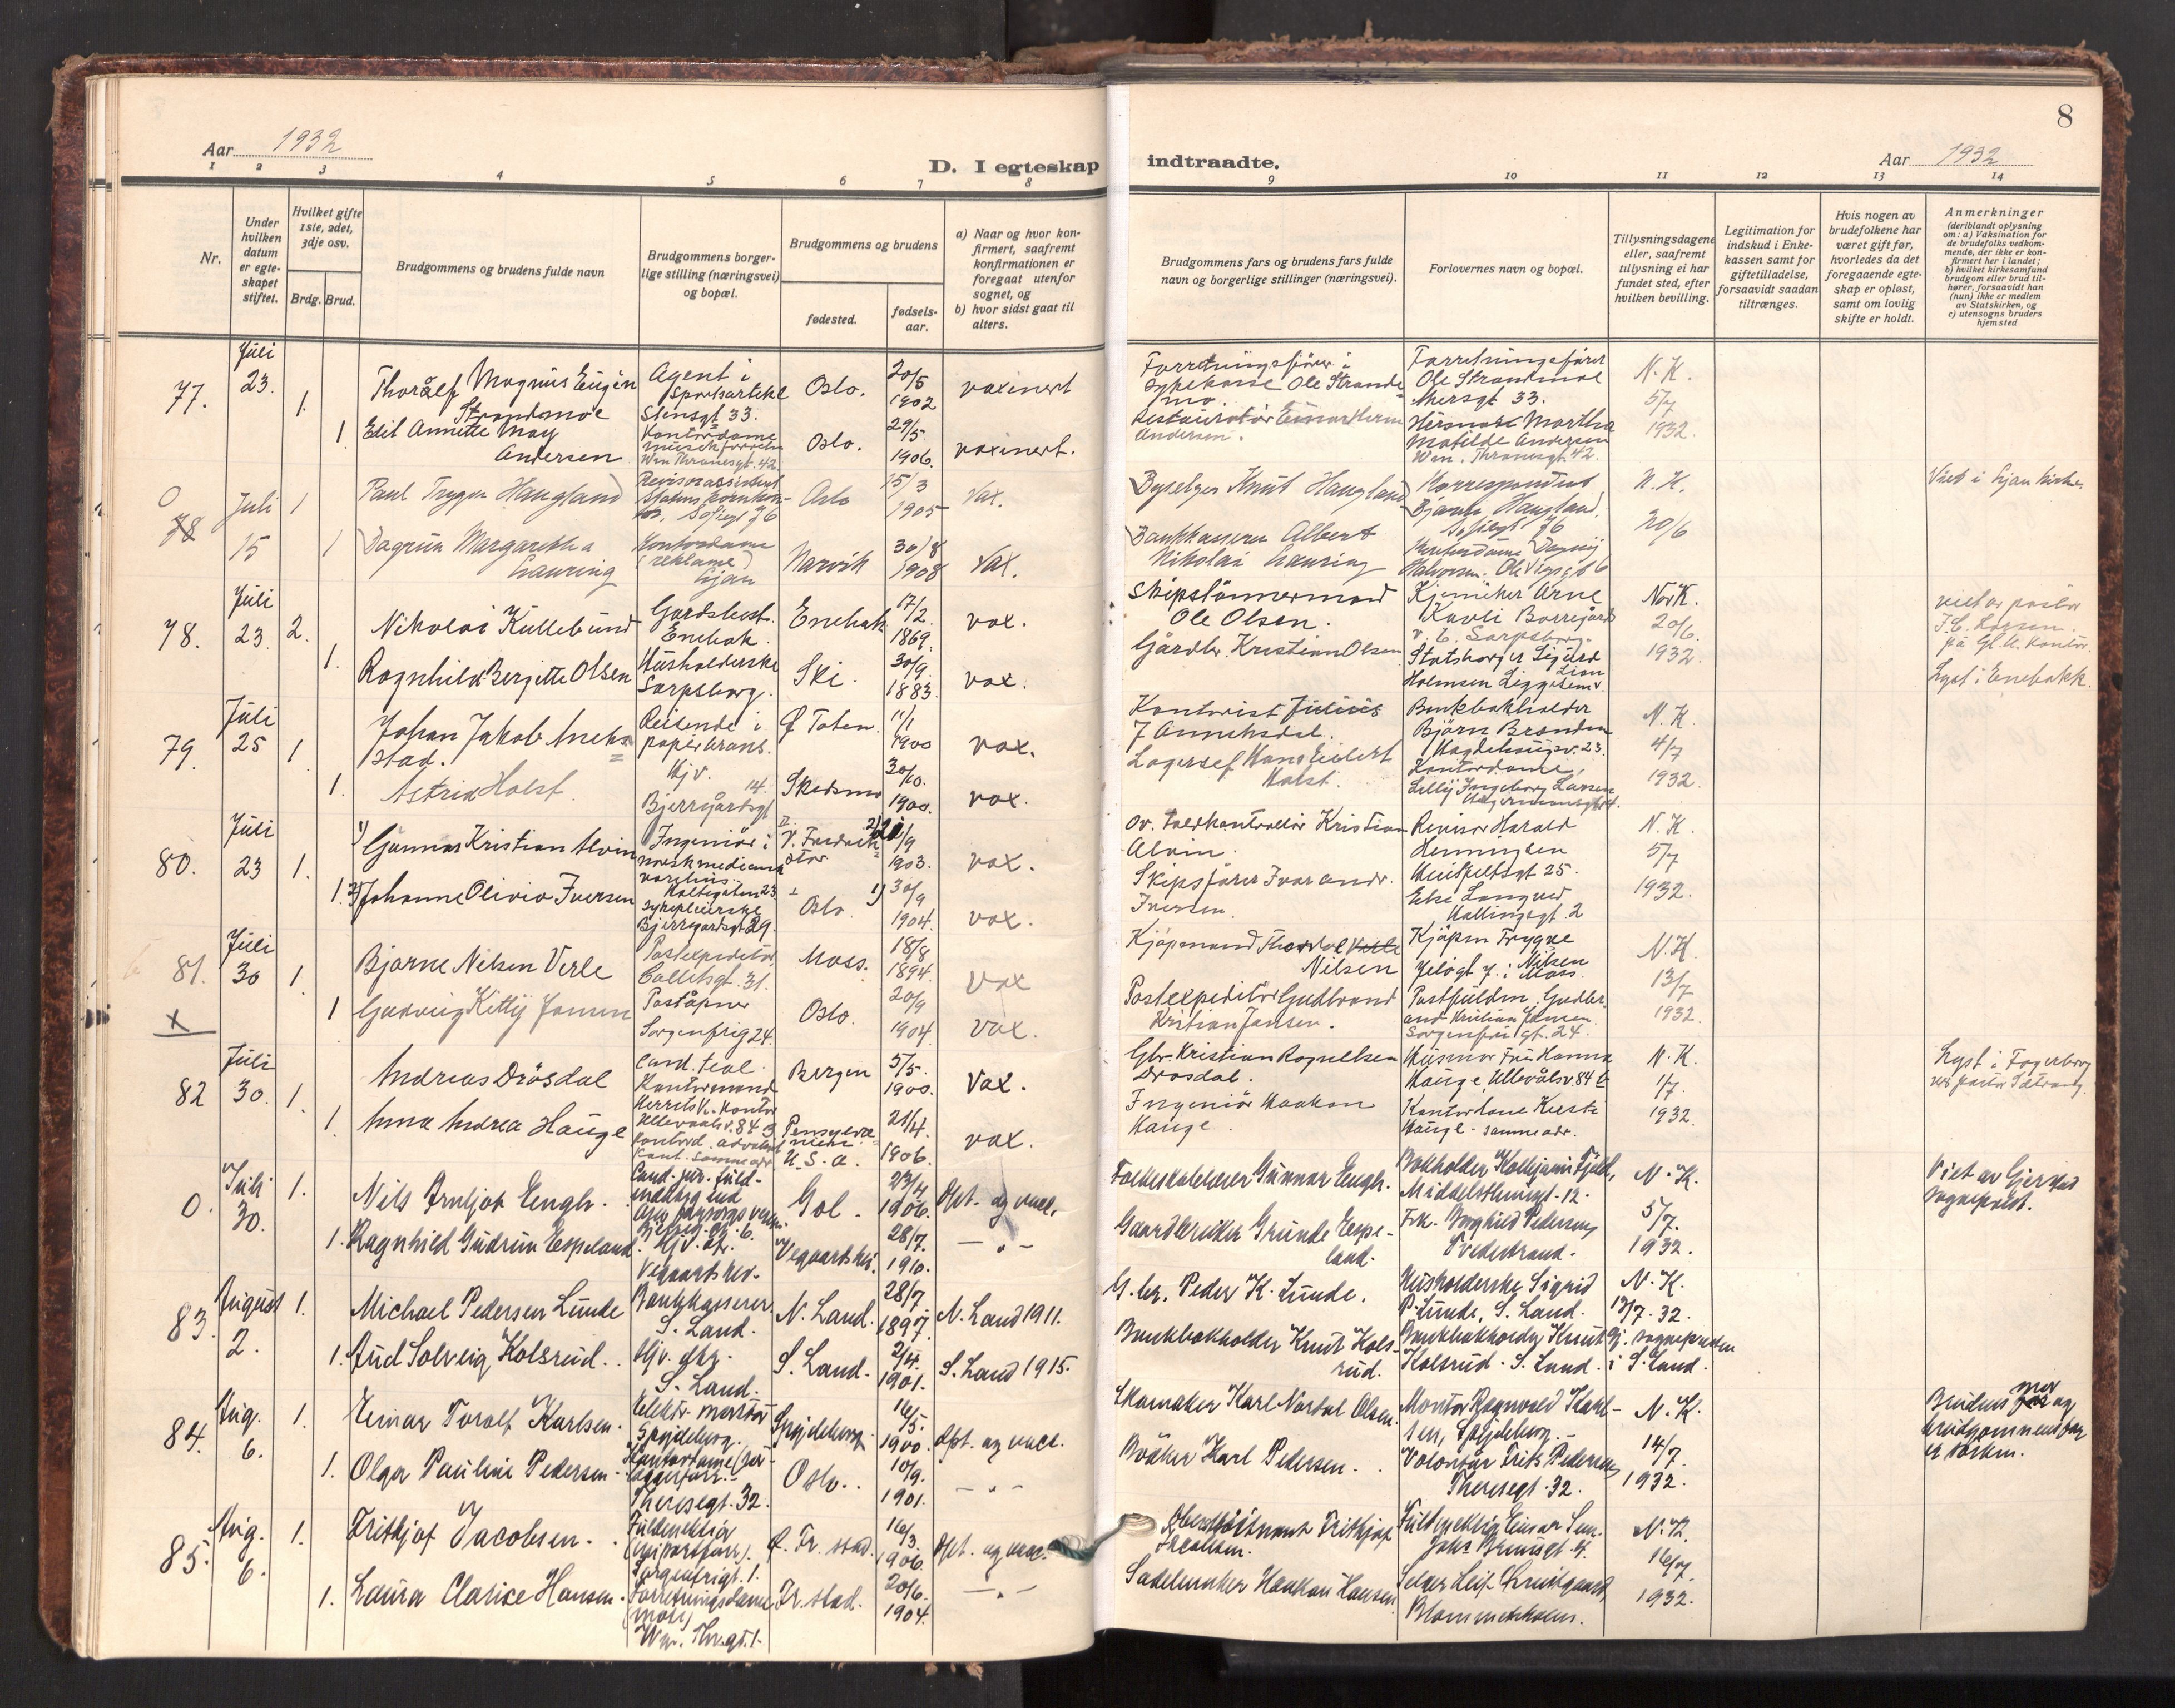 8
Aar 1932
D. I egteskap indtraadte.
Aar 1932
1 2 3 4 5 6 7 8 9 10 11 12 13 14
Nr.
Under hvilken datum er egteskapet stiftet.
Hvilket gifte 1ste, 2det, 3dje osv.
Brdg. Brud.
Brudgommens og brudens fulde navn
Brudgommens borgerlige stilling (næringsvei) og bopæl.
Brudgommens og brudens
fødested.
fødselsaar.
a) Naar og hvor konfirmert, saafremt konfirmationen er foregaat utenfor sognet, og
b) hvor sidst gaat til alters.
Brudgommens fars og brudens fars fulde navn og borgerlige stillinger (næringsvei).
Forlovernes navn og bopæl.
Tillysningsdagene eller, saafremt tillysning ei har fundet sted, efter hvilken bevilling.
Legitimation for indskud i Enkekassen samt for giftetilladelse, forsaavidt saadan tiltrænges.
Hvis nogen av brudefolkene har været gift før, hvorledes da det foregaaende egteskap er opløst, samt om lovlig skifte er holdt.
Anmerkninger (deriblandt oplysning om: a) Vaksination for de brudefolks vedkommende, der ikke er konfirmert her i landet; b) hvilket kirkesamfund brudgom eller brud tilhører, forsaavidt han (hun) ikke er medlem av Statskirken, og c) utensogns bruders hjemsted
77. Juli 23. 1. Thoralf Magnus Eugen Strandmoe
Agent i Sportsartikl Stensgt 33.
Oslo. 20/5 1902 vaxinert
Forretningsfører i sykekasse Ole Strandmo.
Forretningsfører Ole Strandmoe Akersgt 33.
N. K. 5/7 1932.
1 Edit Annette May Andersen
Kontordame Wm Thranesgt. 42
Oslo. 29/5 1906. vaxinert.
Restauratør Einar Herm Andersen.
Husmor Martha Matilde Andersen Wm. Thranesgt. 42.
0 78 Juli 15 1 Paul Trygve Haugland
Revisorassistent Sofiegt 76
Oslo 15/3 1905 Vax.
Byselger Knut Haugland
Korrespondent Bjarne Haugland, Sofiegt 76
N. K. 20/6
Viet i Ljan kirke
1 Dagrun Margaretha Lauring
Kontordame (reklame) Ljan
Narvik 30/8 1908 Vax.
Bankkasserer Albert Nikolai Lauring
Kontordame Dagny Halvorsen. Ole Vigsgt 6
78. Juli 23 2. Nikolai Kullebund
Gardsbest. Enebak.
Enebak 17/2. 1869. vax.
Skipstømmermand Ole Olsen.
Kjemiker Arne Kavli Borregård v. L. Sarpsborg.
Nor K. 20/6. 1932.
viet av pastor J. C. Larsen. på Gl. A. kontor.
Lyst i Enebakk.
1. Ragnhild Bergitte Olsen
Husholderske Sarpsborg.
Ski. 30/9. 1883. vax.
Gårdbr. Kristian Olsen
Statsborger Sigurd Holmsen
79. Juli 25 1. Johan Jakob Annekstad.
Reisende i papir brans.
Ø Toten. 11/1 1900 vax.
Kontorist Julius J Annekstad.
Bankbokholder Bjørn Branden
N. K. 4/7 1932.
1. Astrid Holst.
Hjv. Bjerregårdsgt 14.
Skedsmo 30/10. 1900. vax.
Lagersef Hans Eilert Holst.
Kontordame Lilly Ingeborg Larsen
80. Juli 23 1. 1) Gunnar Kristian Alvin
Ingeniør i norsk medicinal varehus. Holtegaten 23
V. Fredrikstad 2) 21/9 1903. vax.
Ov. toldkontrollør Kristian Alvin.
Revisor Harald Henningsen
N. K. 5/7 1932.
1. 2) Johanne Olivia Iversen
Sykepleierske Bjerregardsgt 29.
Oslo. 1) 30/9 1904. vax.
Skipsfører Ivar Andr. Iversen.
Else Langved Wallingsgt. 2
81. Juli 30 1. Bjarne Nilsen Verle
Postexpeditør, Colletsgt. 31.
Moss. 18/8 1894. vax
Kjøpmand Thorvol Verle Nilsen
Kjøpm Trygve Nilsen Jeløgt 7. i Moss.
N. K. 13/7 1932.
x
1 Gudveig Kitty Jansen
Poståpner Sorgenfrig 24.
Oslo. 20/9 1904. vax.
Postexpeditør Gudbrand Kristian Jansen.
Postfuldm. Gudbrand Kristian Jansen. Sorgenfrigt. 24.
82 Juli 30. 1. Andreas Drösdal
Cand. teol. Kontormand Ullevaalsv. 84 B
Bergen 5/5. 1900. Vax.
Gbr. Kristian Ragnelsen Drösdal.
Husmor Fru Hanna Hauge Ullevålsv 84 b
N. K. 1/7. 1932
Lyst i Fagerborg
1. Anna Andrea Hauge
Kontord. samme adr
Pensylvanien U. S. A. 21/4. 1906. vax.
Ingeniør Haakon Hauge
Kontordame Kirsti Hauge. samme adr.
0. Juli 30. 1. Nils Arnljot Engh.
Cand. jur. fuldmektig
Gol. 23/4 1906. Dpt. og vacc.
Folkeskolelærer Gunnar Engh.
Bokholder Kolbjørn Fjeld, Middelthunsgt. 12.
N. K. 5/7. 1932.
Viet av Gjerstad sogneprest.
1. Ragnhild Gudrun Espeland
Hjv. dt. Vegaarshei.
Vegaartshei. 28/7. 1910. — " —
Gaardbruker Grunde Espeland.
Frk. Borghild Pedersen, Tvedestrand.
83. August 2. 1. Michael Pedersen Lunde
Bankkasserer S. Land.
N. Land. 28/7 1897. N. Land 1911.
G. br. Peder K. Lunde.
Husholderske Sigrid P. Lunde, S. Land.
N. K. 13/7. 32.
1. Aud Solveig Kolsrud.
Hjv. dtr. S. Land.
S. Land. 2/4. 1901. S. Land 1915.
Bankbokholder Knut Kolsrud.
Bankbokholder Knut Kolsrud. S. Land.
Gj. sognepresten i S. Land.
84. Aug. 6. 1. Einar Toralf Karlsen.
Elektr. montør Spydeberg.
Spydeberg. 16/5. 1900. Dpt. og vacc.
Skomaker Karl Nortal Olsen.
Montør Ragnvald Karlsen, Spydeberg.
N. K. 14/7. 1932.
Brudens mor og brudgommens far er søsken.
1. Olga Pauline Pedersen
Kontordame Theresegt. 32.
Oslo. 10/9. 1901. — " —
Bødker Karl Pedersen.
Volontør Frits Pedersen Theresegt. 32.
85. Aug. 6. 1. Fritkjof Jacobsen.
Fuldmektig (importforr). Sorgenfrigt. 1.
Ø. Fr. stad. 16/3 1906. Dpt. og vacc.
Oberstløitnant Fritkjof Jacobsen.
Fuldmektig Einar Sem. Johs Brunsgt. 4.
N. K. 16/7. 1932.
1. Laura Clarice Hansen.
Forretningsdame (mote) Wm. Thr. gt. 1.
Fr. stad. 20/6. 1904. — " —
Sadelmaker Haakon Hansen
Selger Leif Blommenholm.